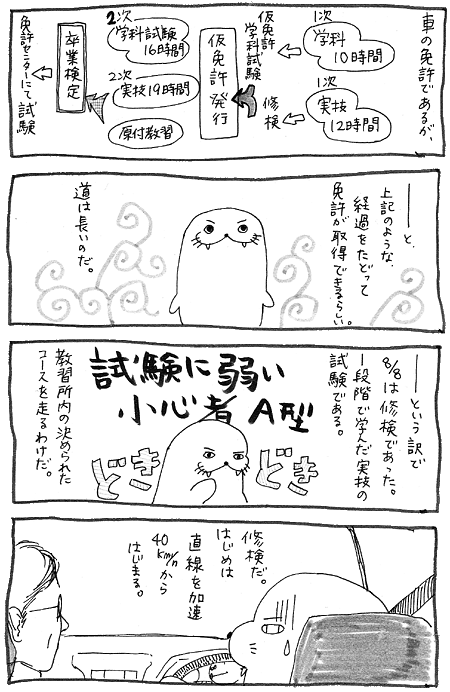 車の免許であるが、
1次
学科
10時間
1次
実技
12時間
仮免許
学科試験
修検
仮免許発行
2次
学科試験
16時間
2次
実技19時間
原付教習
卒業検定
免許センターにて試験
――と、
上記のような、
経過をたどって
免許が取得できるらしい。
道は長いのだ。
――という訳で
8/8は修検であった。
一段階で学んだ実技の
試験である。
試験に弱い
小心者 A型
どき
どき
教習所内の決められた
コースを走るわけだ。
修検だ。
はじめは
直線を加速
40km/hから
はじまる。